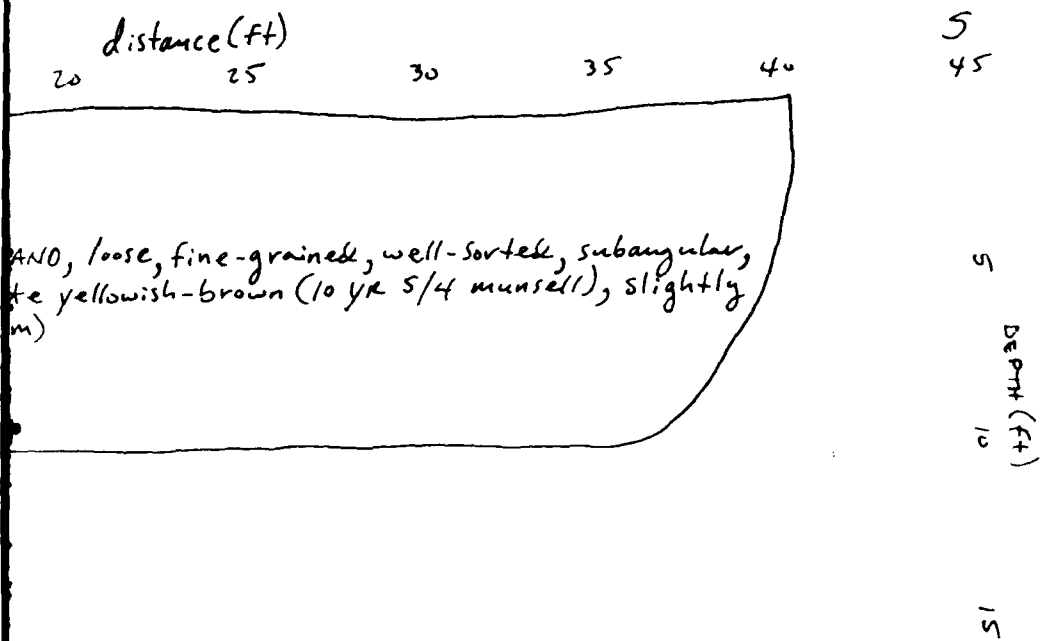 distance (ft)
S
20 25 30 35 40 45
AND, loose, fine-grained, well-sorted, subangular,
te yellowish-brown (10 YR 5/4 munsell), slightly
m)
5
DEPTH (ft)
10
15